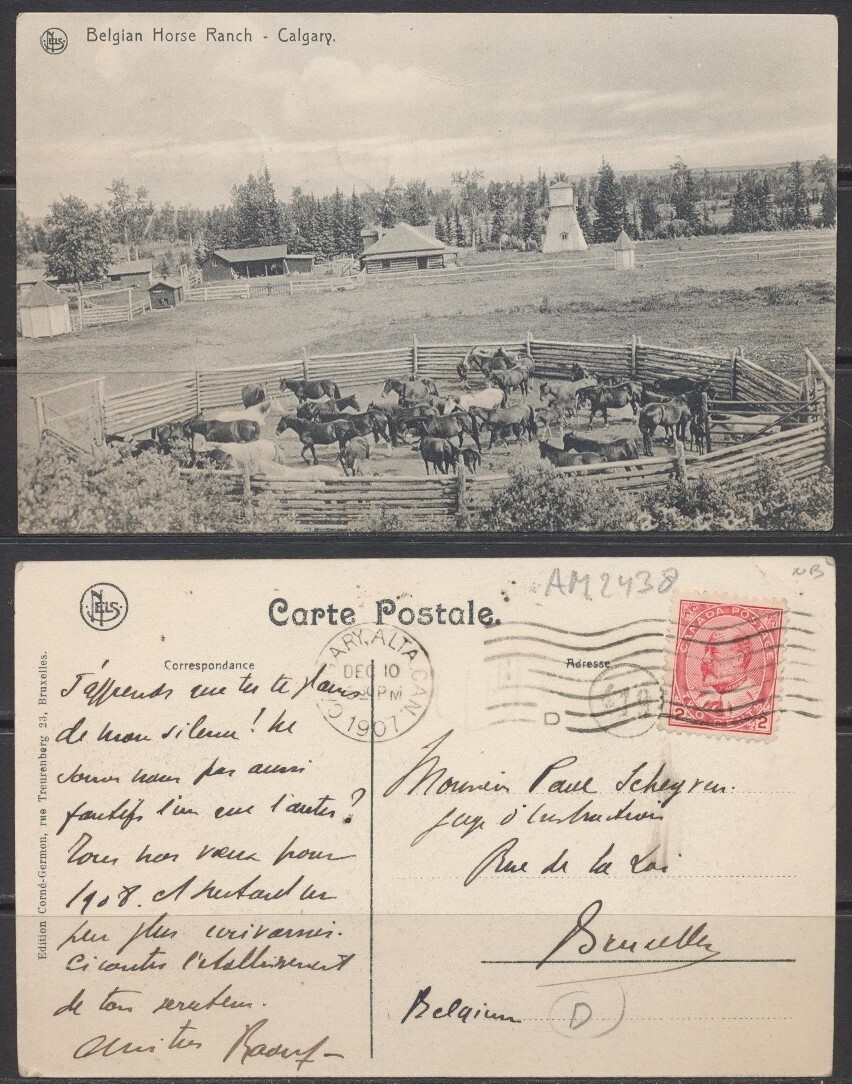 NELS
Belgian Horse Ranch - Calgary.
AM2438
NB
NELS
Carte Postale.
Correspondance
Adresse
CALGARY, ALTA. CAN
DEC 10
PM
1907
D
CANADA POSTAGE
2 2
Edition Corné-Germon, rue Treurenberg 23, Bruxelles.
J'apprends que tu te plains
de mon silence! Ne
sommes nous pas aussi
fautifs l'un que l'autre?
Tous nos vœux pour
1908. A bientôt un
peu plus
Ci contre l'établissement
de ton serviteur.
Amitiés
Monsieur Paul
Juge d'Instruction
Rue de la Loi
Bruxelles
Belgium
D